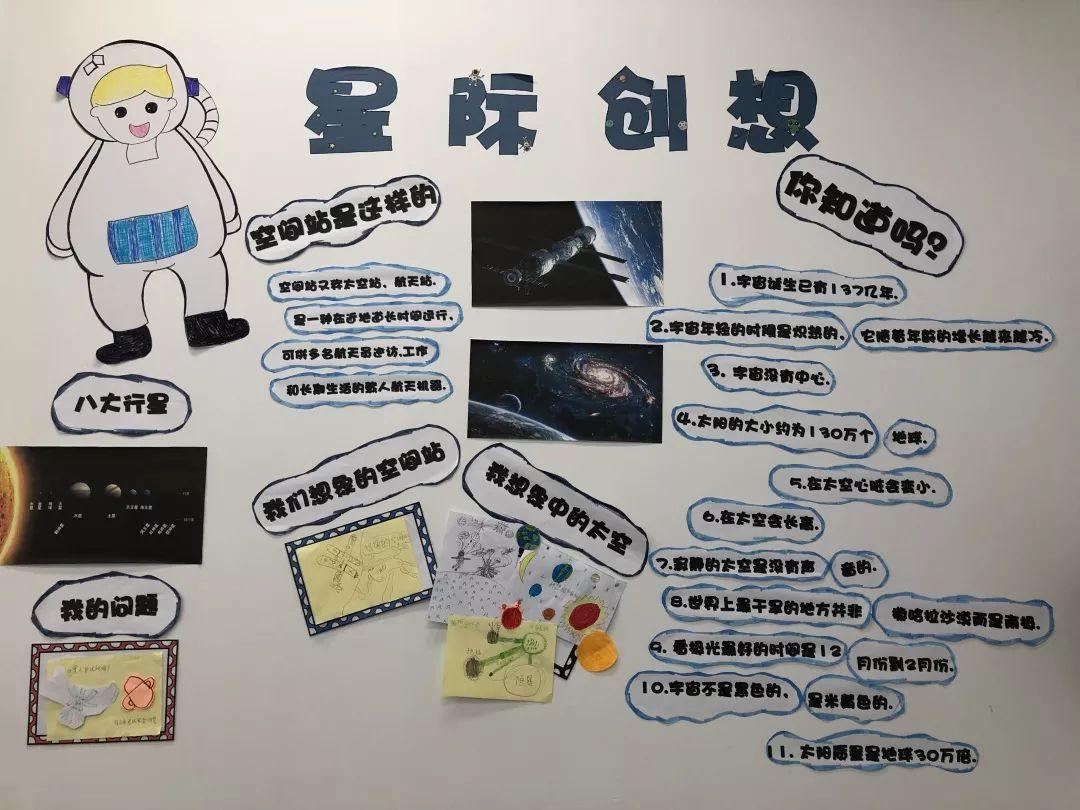 星际创想
你知道吗?
空间站是这样的
空间站又称太空站、航天站.
是一种在近地道长时间运行,
可供多名航天员巡访.工作
和长期生活的载人航天机器.
1.宇宙诞生已有137亿年.
2.宇宙年轻的时候是炽热的, 它随着年龄的增长越来越冷.
3. 宇宙没有中心.
4.太阳的大小约为130万个 地球.
5.在太空心脏会变小.
6.在太空会长高.
7.寂静的太空是没有声 音的.
8.世界上最干旱的地方并非 撒哈拉沙漠而是南极.
9. 看极光最好的时间是12 月份到2月份.
10.宇宙不是黑色的, 是米黄色的.
11. 太阳质量是地球30万倍.
八大行星
木星
土星
我们想象的空间站
我想象中的太空
恒星
我的问题